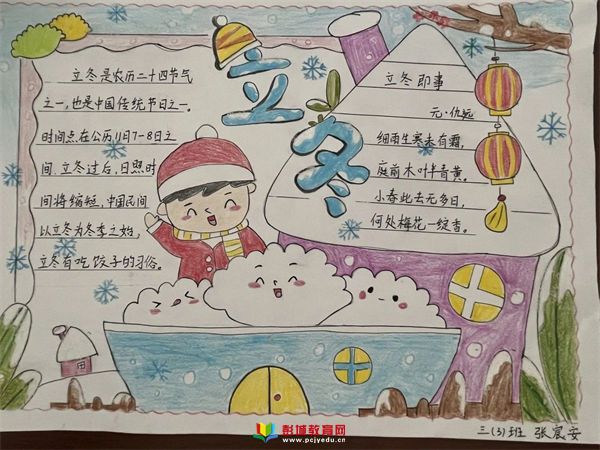 立冬
立冬是农历二十四节气
之一，也是中国传统节日之一。
时间点在公历11月7-8日之
间，立冬过后，日照时
间将缩短，中国民间
以立冬为冬季之始，
立冬有吃饺子的习俗。
立冬即事
元·仇远
细雨生寒未有霜，
庭前木叶半青黄。
小春此去无多日，
何处梅花一绽香。
三（3）班 张宸安
彭城教育网
www.pcjyedu.cn